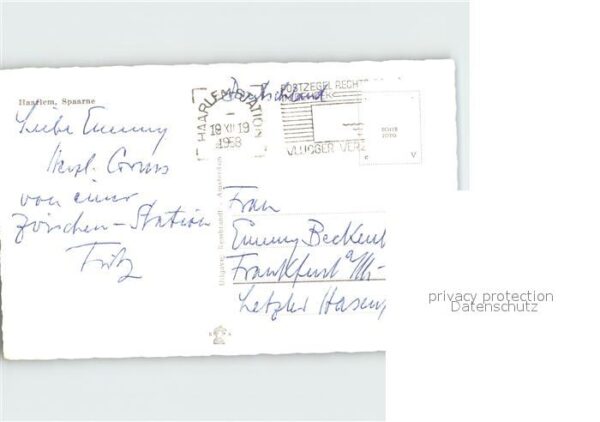 Haarlem, Spaarne
Liebe Emmy
Herzl. Gruss
von einer
Zwischen-Station
Fritz
Deutschland
HAARLEM-STATION
19 XII 19
1958
POSTZEGEL RECHTS
VLUGGER VERZ
ECHTE
FOTO
Uitgave Rembrandt - Amsterdam
Frau
Emmy Beckenb
Frankfurt a/M-
Letzter Haseng
privacy protection
Datenschutz